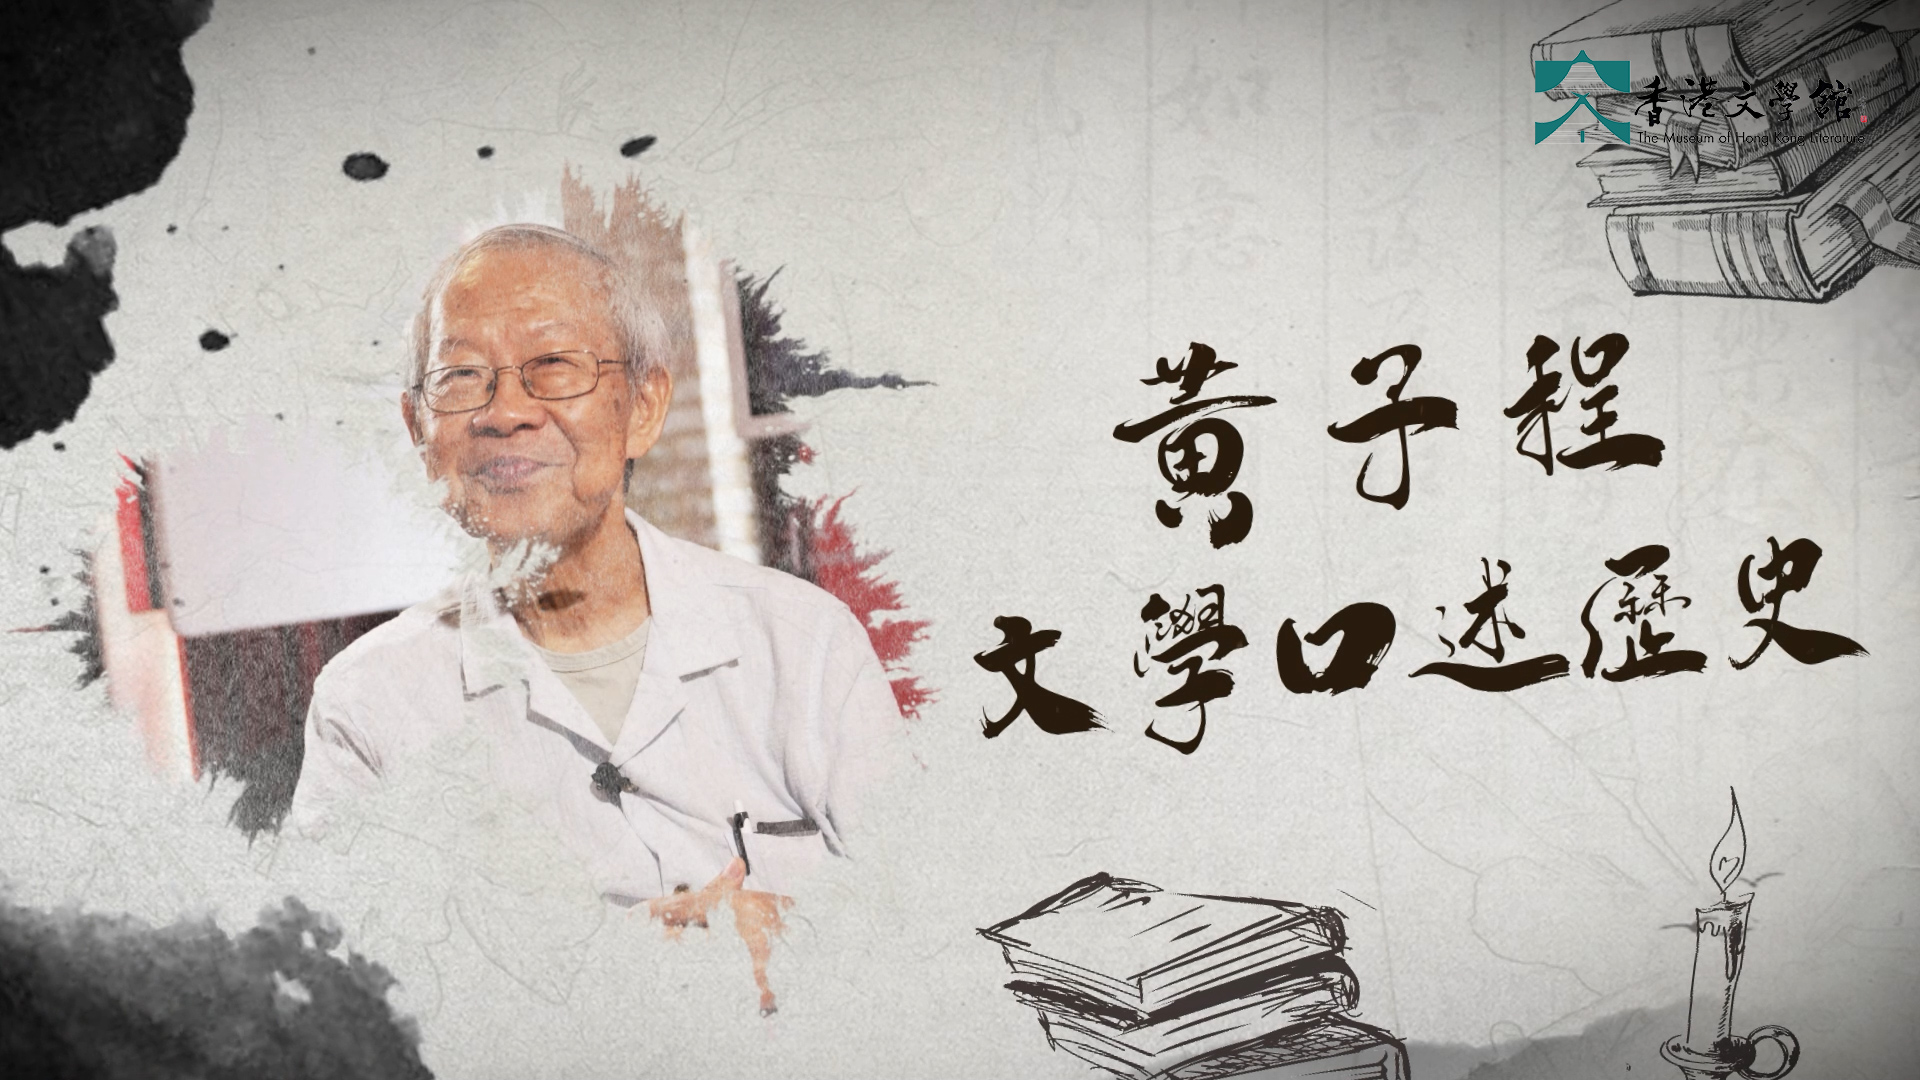 香港文學館
The Museum of Hong Kong Literature
黃子程
文學口述歷史